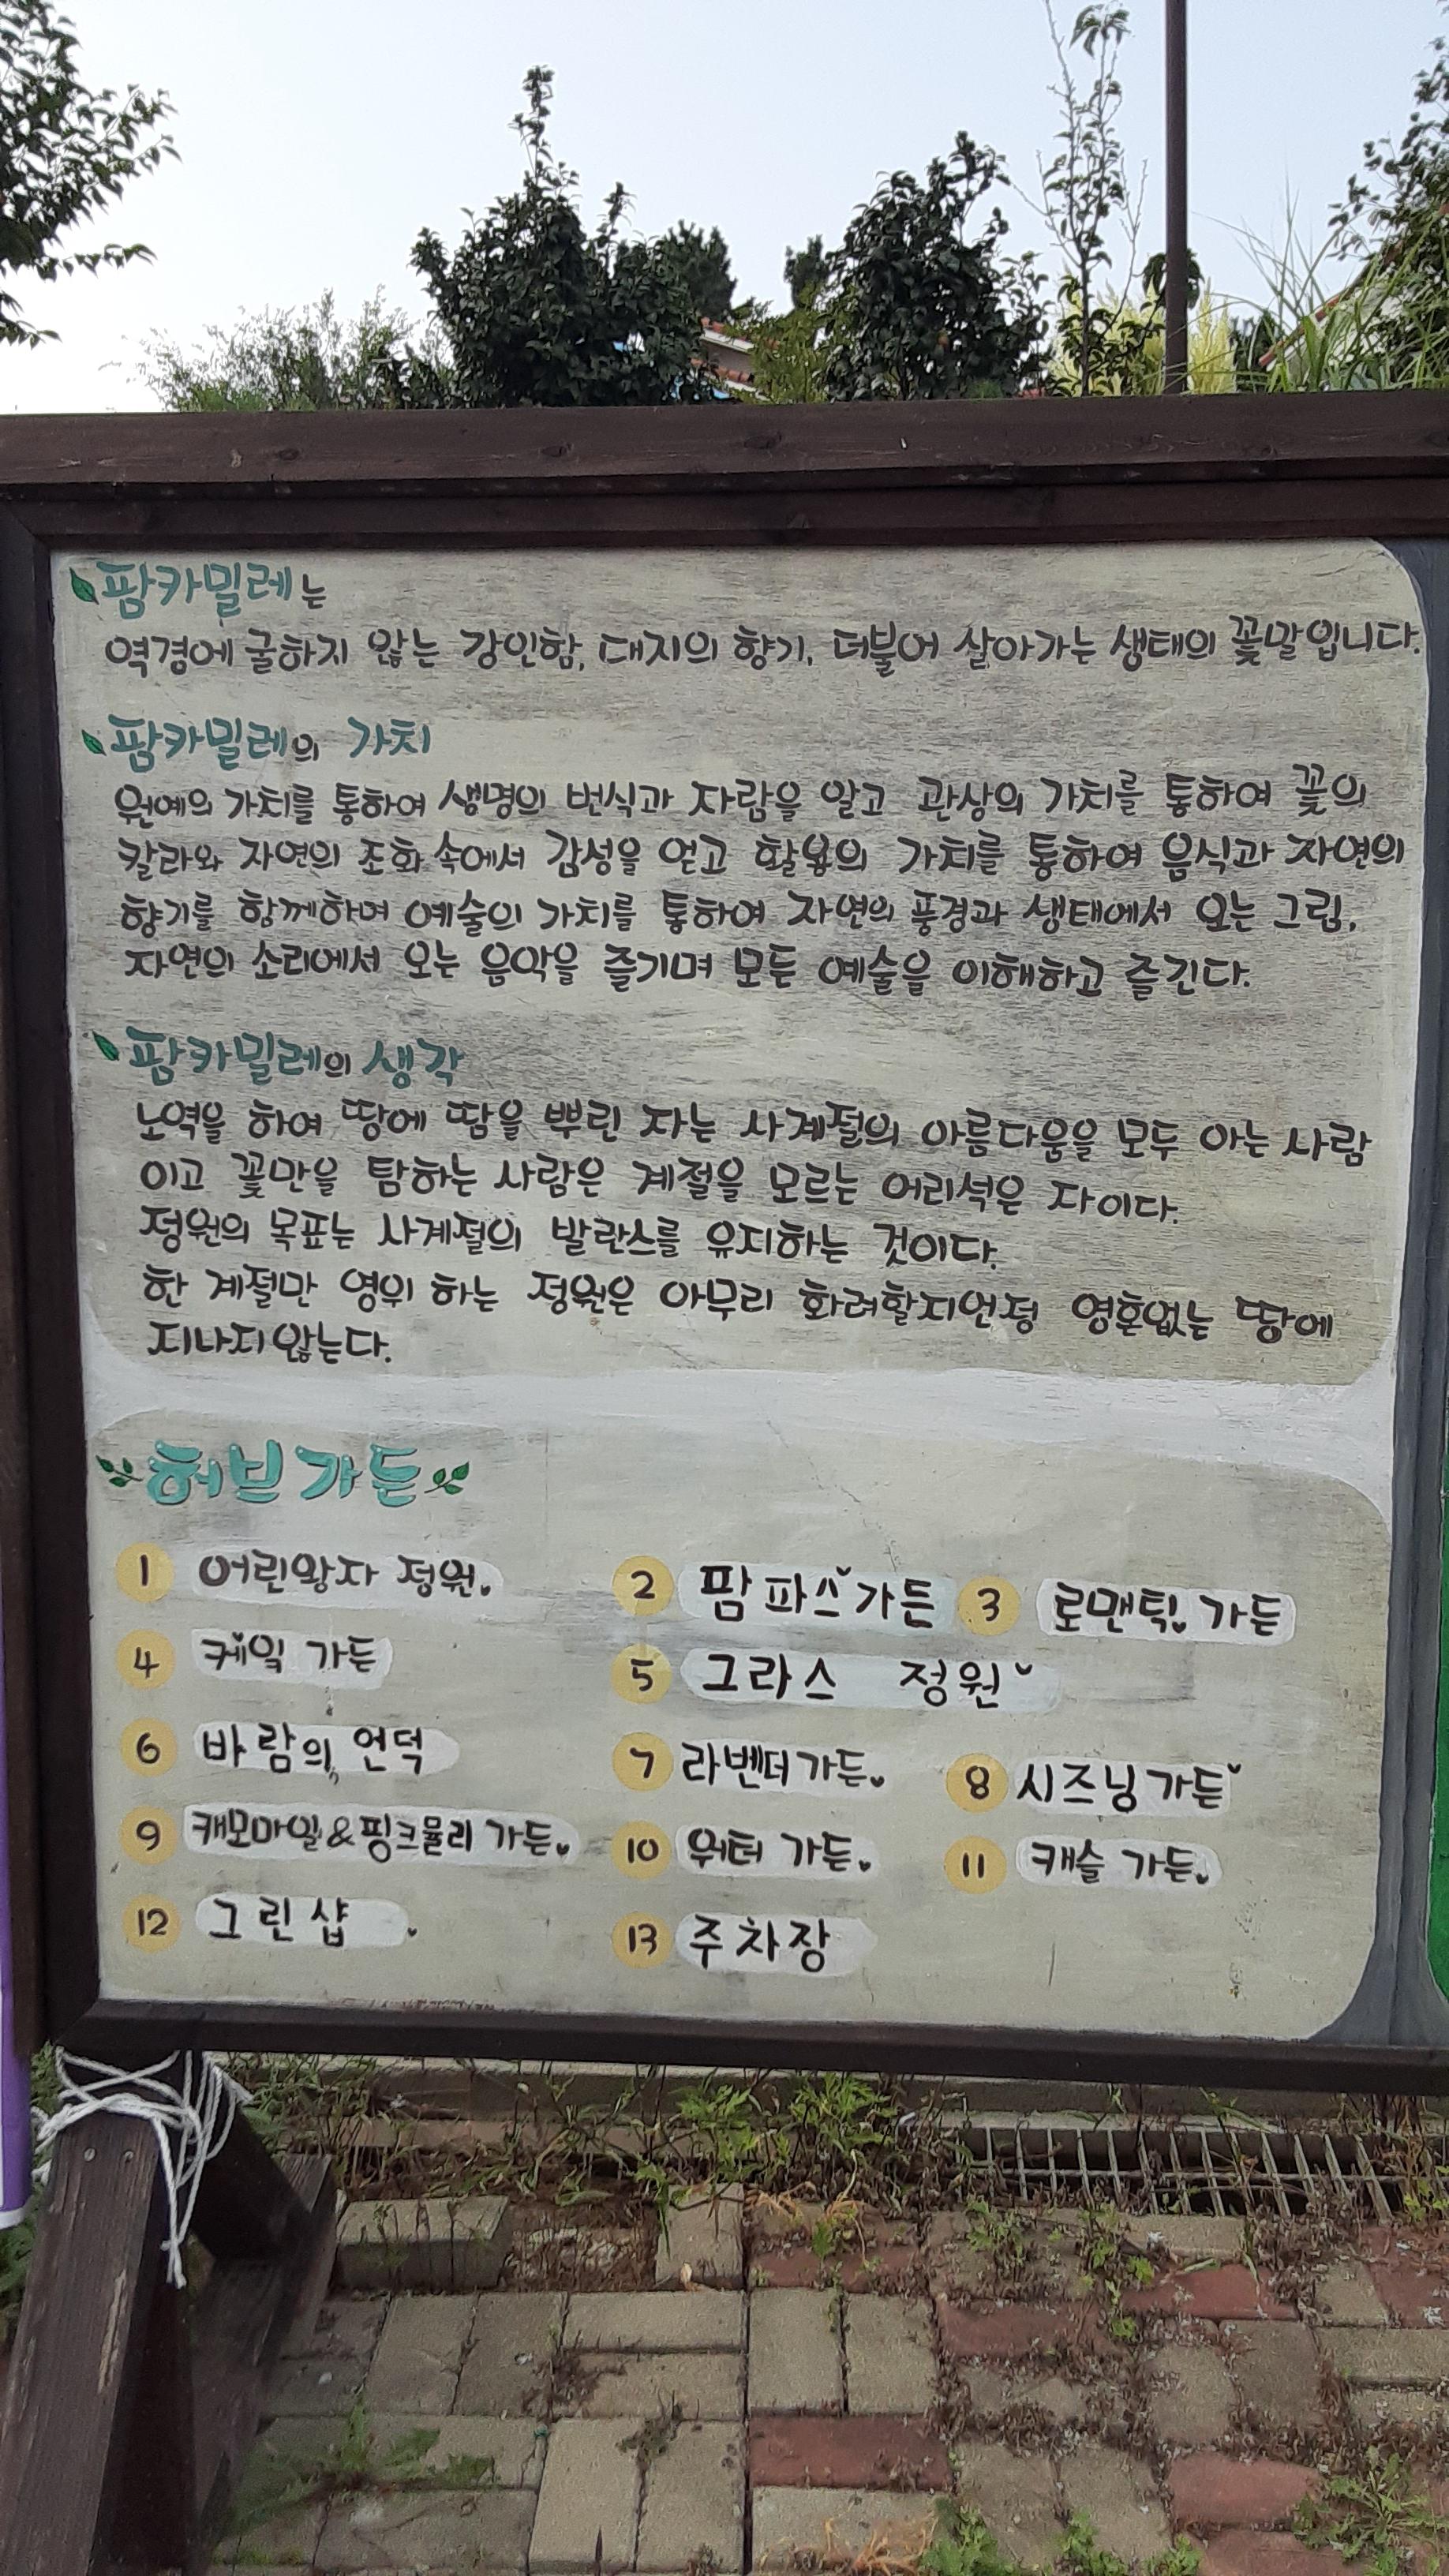 팜카밀레는
역경에 굴하지 않는 강인함, 대지의 향기, 더불어 살아가는 생태의 꽃말입니다.
팜카밀레의 가치
원예의 가치를 통하여 생명의 번식과 자람을 알고 관상의 가치를 통하여 꽃의
칼라와 자연의 조화 속에서 감성을 얻고 활용의 가치를 통하여 음식과 자연의
향기를 함께하며 예술의 가치를 통하여 자연의 풍경과 생태에서 오는 그림,
자연의 소리에서 오는 음악을 즐기며 모든 예술을 이해하고 즐긴다.
팜카밀레의 생각
노역을 하여 땅에 땀을 뿌린 자는 사계절의 아름다움을 모두 아는 사람
이고 꽃만을 탐하는 사람은 계절을 모르는 어리석은 자이다.
정원의 목표는 사계절의 발란스를 유지하는 것이다.
한 계절만 영위 하는 정원은 아무리 화려할지언정 영혼없는 땅에
지나지않는다.
허브가든
1 어린왕자 정원
2 팜파스가든 3 로맨틱 가든
4 케익 가든
5 그라스 정원
6 바람의 언덕
7 라벤더가든 8 시즈닝가든
9 캐모마일&핑크뮬리 가든
10 워터 가든 11 캐슬 가든
12 그린샵
13 주차장